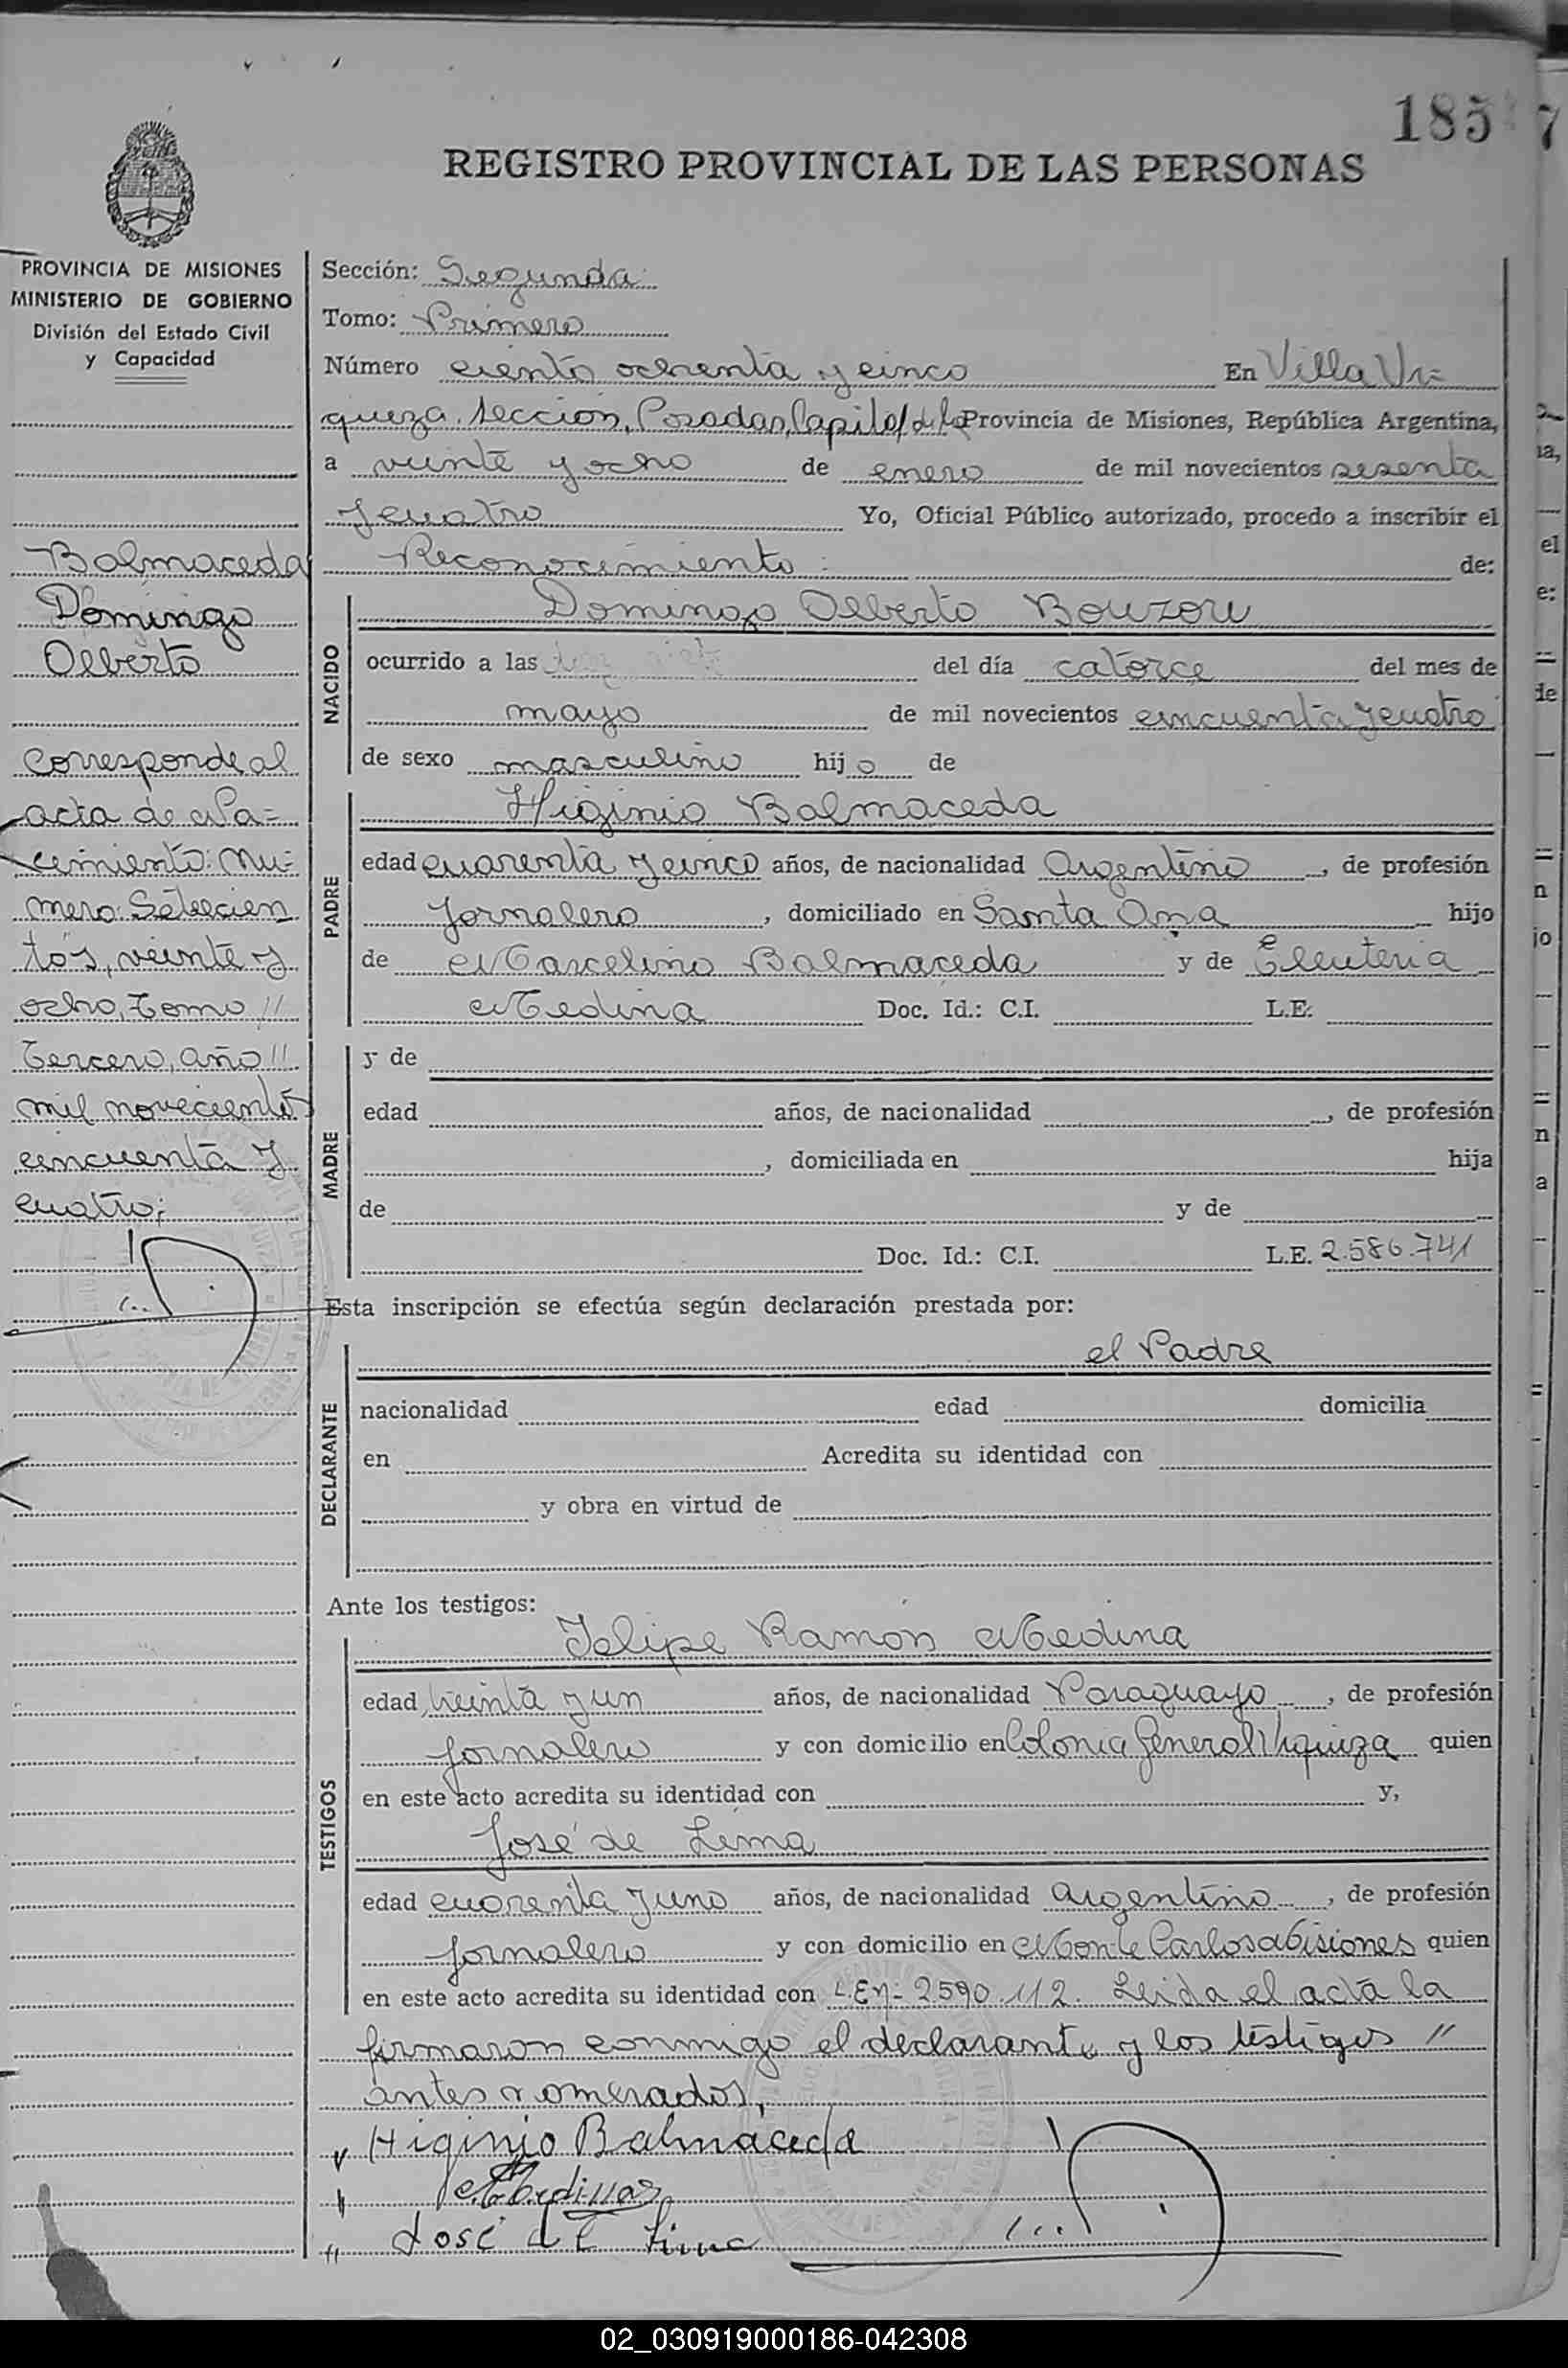 185
7
REGISTRO PROVINCIAL DE LAS PERSONAS
PROVINCIA DE MISIONES
MINISTERIO DE GOBIERNO
División del Estado Civil
y Capacidad
Balmaceda
Domingo
Alberto
Corresponde al
acta de Na=
cimiento: Nú=
mero: Setecien
tos, veinte y
ocho, Tomo //
Tercero, año //
mil novecientos
cincuenta y
cuatro;
Sección: Segunda
Tomo: Primero
Número ciento ochenta y cinco En Villa Ur=
queza, Sección, Posadas, Capital de la Provincia de Misiones, República Argentina,
a veinte y ocho de enero de mil novecientos sesenta
y cuatro Yo, Oficial Público autorizado, procedo a inscribir el
Reconocimiento: de:
NACIDO
Domingo Alberto Bouzou
ocurrido a las del día catorce del mes de
mayo de mil novecientos cincuenta y cuatro
de sexo masculino hijo de
PADRE
Higinio Balmaceda
edad cuarenta y cinco años, de nacionalidad Argentino, de profesión
Jornalero, domiciliado en Santa Ana hijo
de Marcelino Balmaceda y de Eleuteria
Medina Doc. Id.: C.I. L.E:
MADRE
y de
edad años, de nacionalidad , de profesión
, domiciliada en hija
de y de
Doc. Id.: C.I. L.E. 2.586.741
Esta inscripción se efectúa según declaración prestada por:
DECLARANTE
el Padre
nacionalidad edad domicilia
en Acredita su identidad con
y obra en virtud de
Ante los testigos:
TESTIGOS
Felipe Ramón Medina
edad treinta y un años, de nacionalidad Paraguayo, de profesión
Jornalero y con domicilio en Colonia General Urquiza quien
en este acto acredita su identidad con y,
José de Lima
edad cuarenta y uno años, de nacionalidad Argentino, de profesión
Jornalero y con domicilio en Monte Carlos Misiones quien
en este acto acredita su identidad con L.E nº 2590.112. Leida el acta la
firmaron conmigo el declarante y los testigos //
antes nomerados,
Higinio Balmaceda
José de Lima
02_030919000186-042308